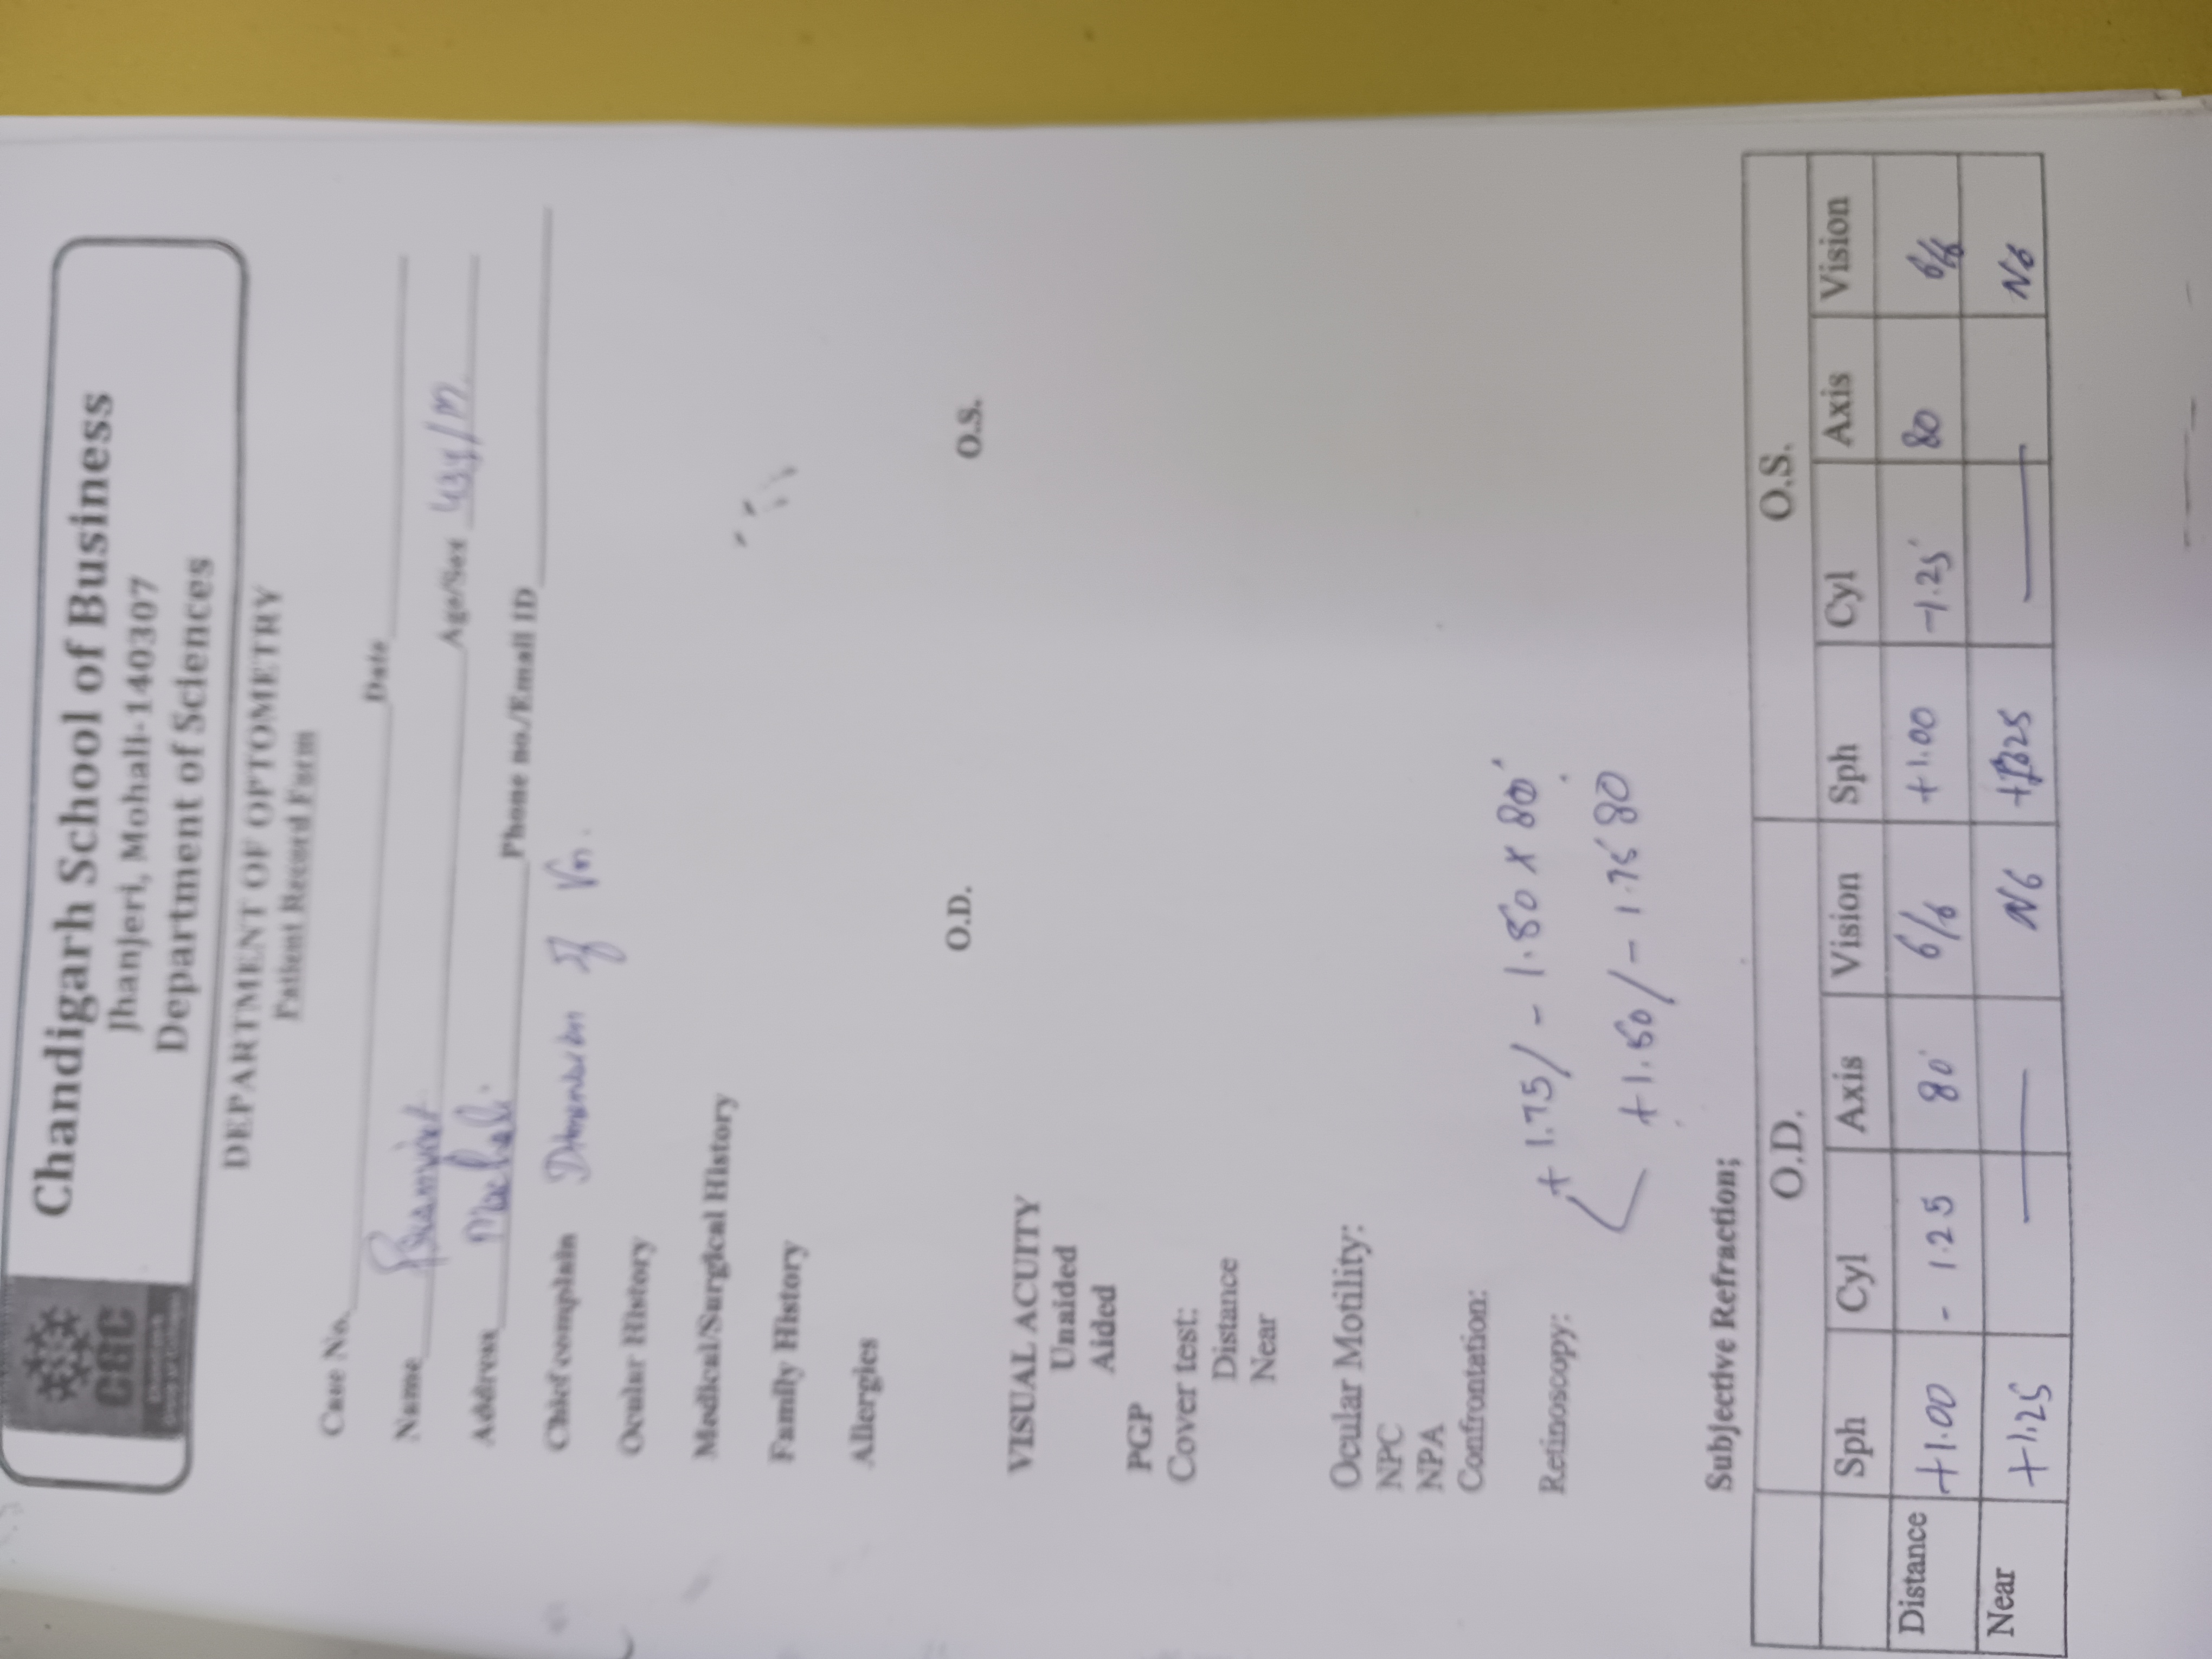 CGC
Chandigarh
Group of Colleges
Chandigarh School of Business
Jhanjeri, Mohali-140307
Department of Sciences
DEPARTMENT OF OPTOMETRY
Patient Record Form
Case No. Date
Name Age/Sex 43y/M
Address Phone no./Email ID
Chief complain of Vn.
Ocular History
Medical/Surgical History
Family History
Allergies
O.D. O.S.
VISUAL ACUITY
Unaided
Aided
PGP
Cover test:
Distance
Near
Ocular Motility:
NPC
NPA
Confrontation:
Retinoscopy: +1.75/-1.50 x 80
+1.50/-1.75 80
Subjective Refraction;
O.D. O.S.
Sph Cyl Axis Vision Sph Cyl Axis Vision
Distance +1.00 -1.25 80 6/6 +1.00 -1.25 80 6/6
Near +1.25 N6 N6